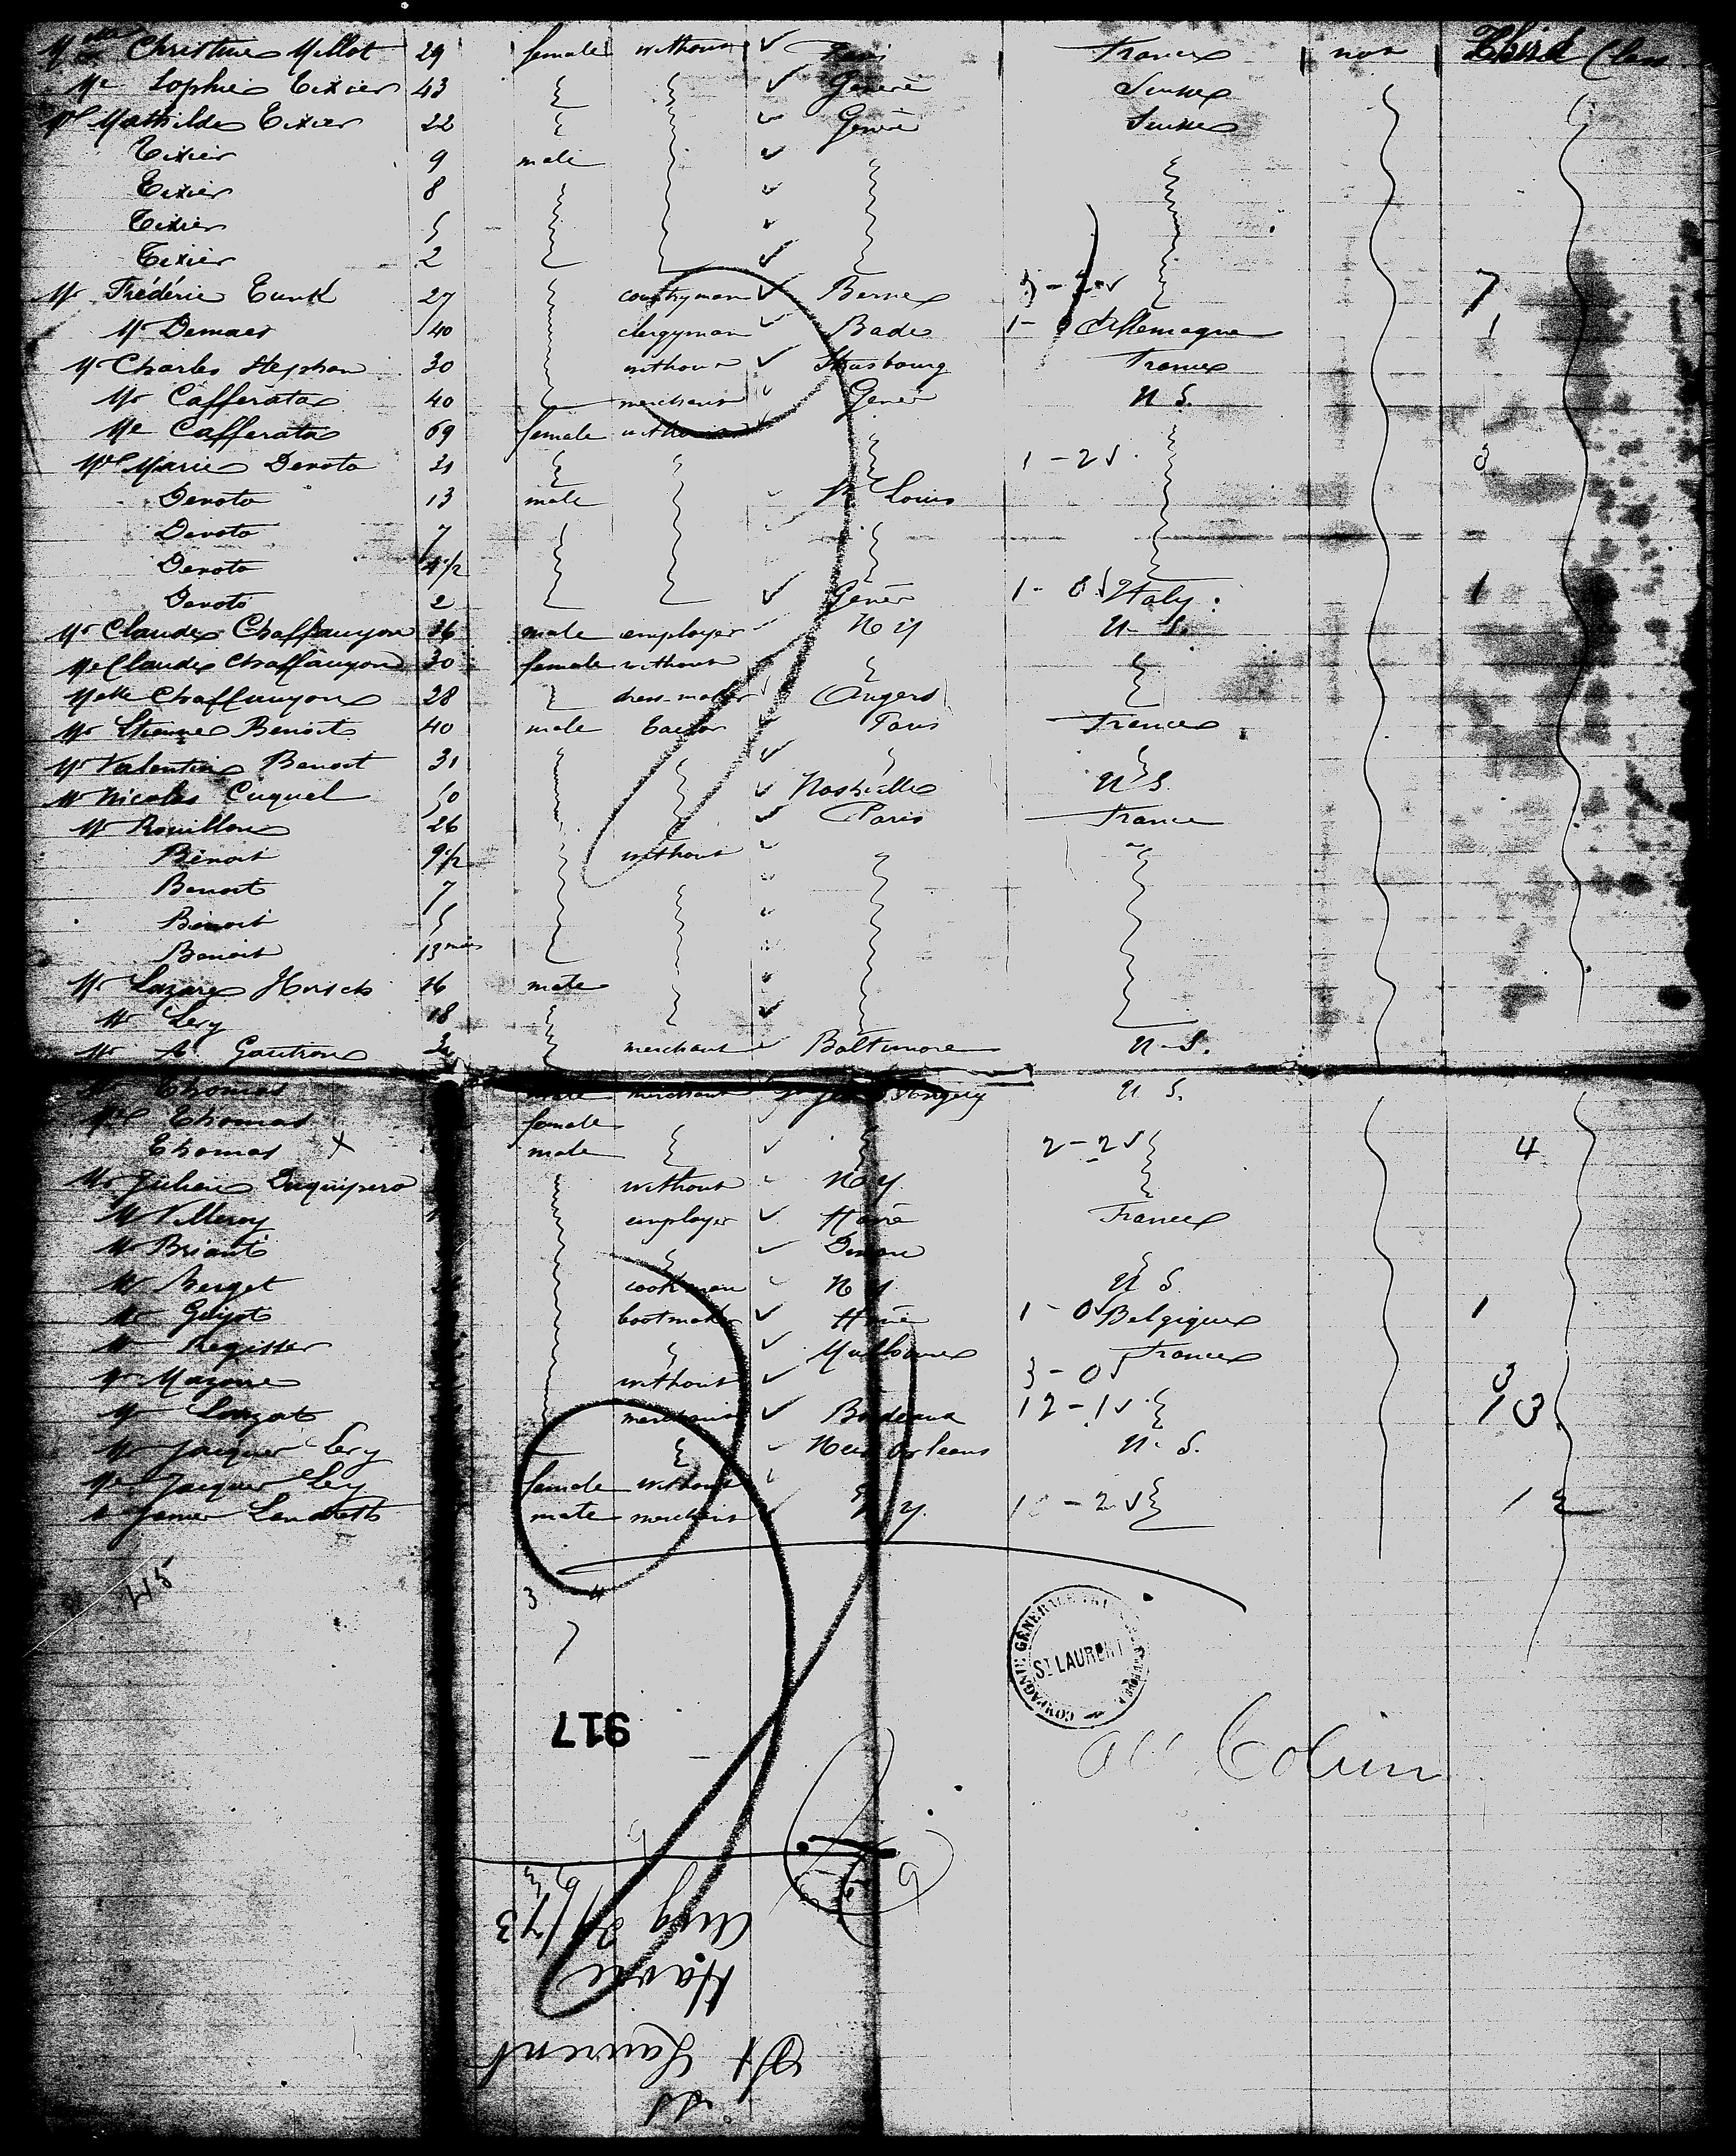 Melle Christine Millot 29 female without Paris France non Third Class
Me Sophie Tixier 43 Genève Suisse
Mlle Mathilde Tixier 22 Genève Suisse
Tixier 9 male
Tixier 8
Tixier 5
Tixier 2
Mr Frédéric Eunk 27 countryman Berne 7
Mr Demaer 40 clergyman Bade 1- 0 Allemagne 1
Mr Charles Stephan 30 without Strasbourg France
Mr Cafferata 40 merchant Gener U S.
Me Cafferata 69 female without
Mlle Marie Devoto 31 1 - 2 3
Devoto 13 male St Louis
Devoto 7
Devoto 4 1/2
Devoto 2 Gener 1 - 0 Italy 1
Mr Claude Chaffanyon 36 male employer N Y U S.
Me Claude Chaffanyon 30 female without
Melle Chaffanyon 28 dress-maker Angers
Mr Etienne Benoit 40 male tailor Paris France
Mr Valentin Benoit 31
Mr Nicolas Cuquel 50 Nashville U S.
Mr Rouillon 26 Paris France
Benoit 9 1/2 without
Benoit 7
Benoit 5
Benoit 13 mois
Mr Lazare Hirsch 16 male
Mr Levy 18
Mr A. Gautron merchant Baltimore U. S.
Mr Thomas male merchant U S.
Me Thomas female
Thomas X male 2 - 2 4
Mr Julien without N Y.
Mr Villeroy employer Havre France
Mr Briant
Mr Berget N Y U S.
Mr Guyot bootmaker Havre 1 - 0 Belgique 1
Mr Register Mulhouse France
Mr Mazoire without 3 - 0 3
Mr Lauzat merchant Bordeaux 12 - 1 13
Mr Jacques Levy New Orleans U. S.
Me Jacques Levy female without
Mr James Landreth male merchant N Y. 10 - 2 12
215
3 4
7
COMPAGNIE GÉNÉRALE TRANSATLANTIQUE
ST LAURENT
917
Colin
Aug 29/73
Havre
St Laurent
SS